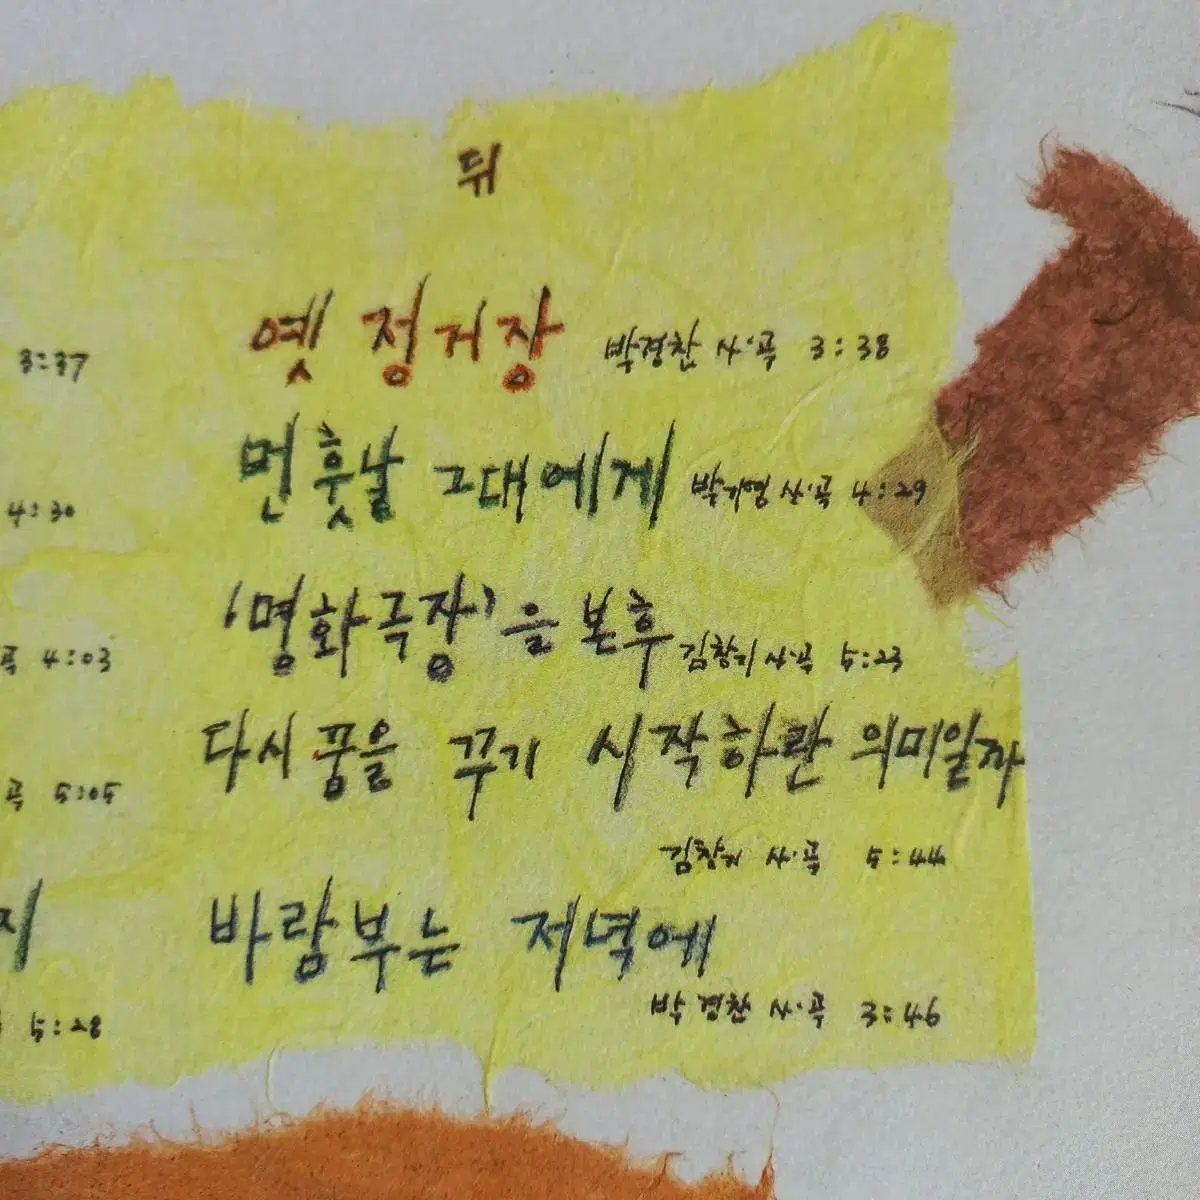 뒤
3:37
옛 정거장 박경찬 사·곡 3:38
4:30
먼 훗날 그대에게 박기영 사·곡 4:29
곡 4:03
'명화극장'을 본후 김창기 사·곡 5:23
곡 5:05
다시 꿈을 꾸기 시작하란 의미일까
김창기 사·곡 5:44
지
바람부는 저녁에
5:28
박경찬 사·곡 3:46